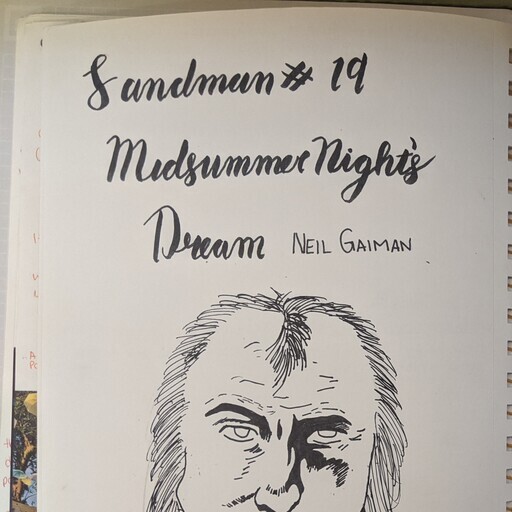 Sandman # 19
Midsummer Night's
Dream NEIL GAIMAN